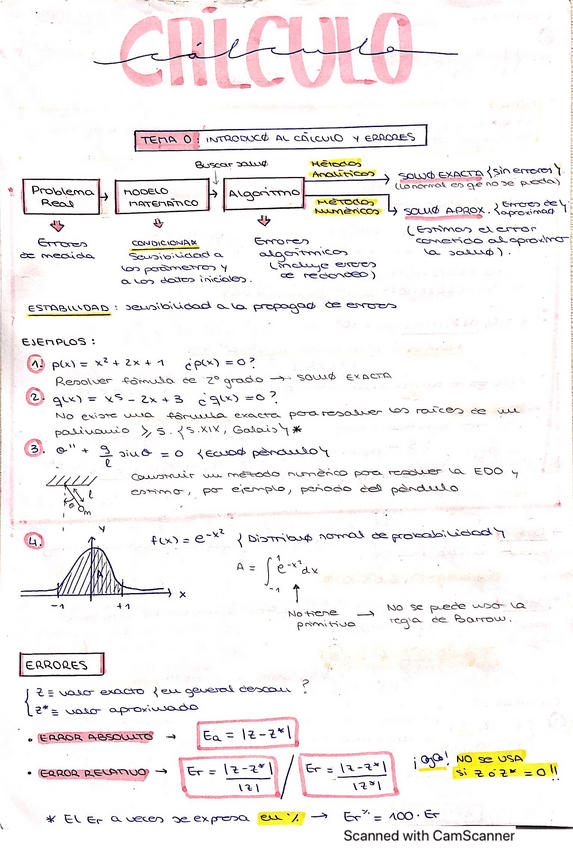 CÁLCULO
cálculo
TEMA 0: INTRODUCØ AL CÁLCULO Y ERRORES
Buscar soluØ
Problema Real
MODELO MATEMÁTICO
Algoritmo
Métodos Analíticos
SOLUØ EXACTA {sin errores}
(Lo normal es q no se pueda)
MÉTODOS NUMÉRICOS
SOLUØ APROX. {Errores de aproximaØ}
(Estimos el error cometido al aproximar la soluØ).
Errores de medida
CONDICIONAR
Sensibilidad a los parámetros y a los datos iniciales.
Errores algorítmicos (incluye errores de redondeo)
ESTABILIDAD: sensibilidad a la propagaØ de errores
EJEMPLOS:
1. p(x) = x² + 2x + 1 ¿p(x) = 0?
Resolver fórmula de 2º grado → SOLUØ EXACTA
2. q(x) = x⁵ - 2x + 3 ¿q(x) = 0?
No existe una fórmula exacta para resolver las raíces de un
polinomio ≥ 5. {S.XIX, Galois} *
3. θ'' + g/l sin θ = 0 {EcuaØ péndulo}
Construir un método numérico para resolver la EDO y
estimo, por ejemplo, periodo del péndulo
θ l m
4. f(x) = e^-x² {DistribuØ normal de probabilidad}
y
A
-1 +1 x
A = ∫₋₁¹ e^-x² dx
No tiene primitiva → No se puede usar la regla de Barrow.
ERRORES
z ≡ valor exacto {en general descon}?
z* ≡ valor aproximado
• ERROR ABSOLUTO → Ea = |z - z*|
• ERROR RELATIVO → Er = |z - z*| / |z| / Er = |z - z*| / |z*|
¡Ojo! NO SE USA
si z o z* = 0!!
* El Er a veces se expresa en % → Er% = 100 · Er
Scanned with CamScanner